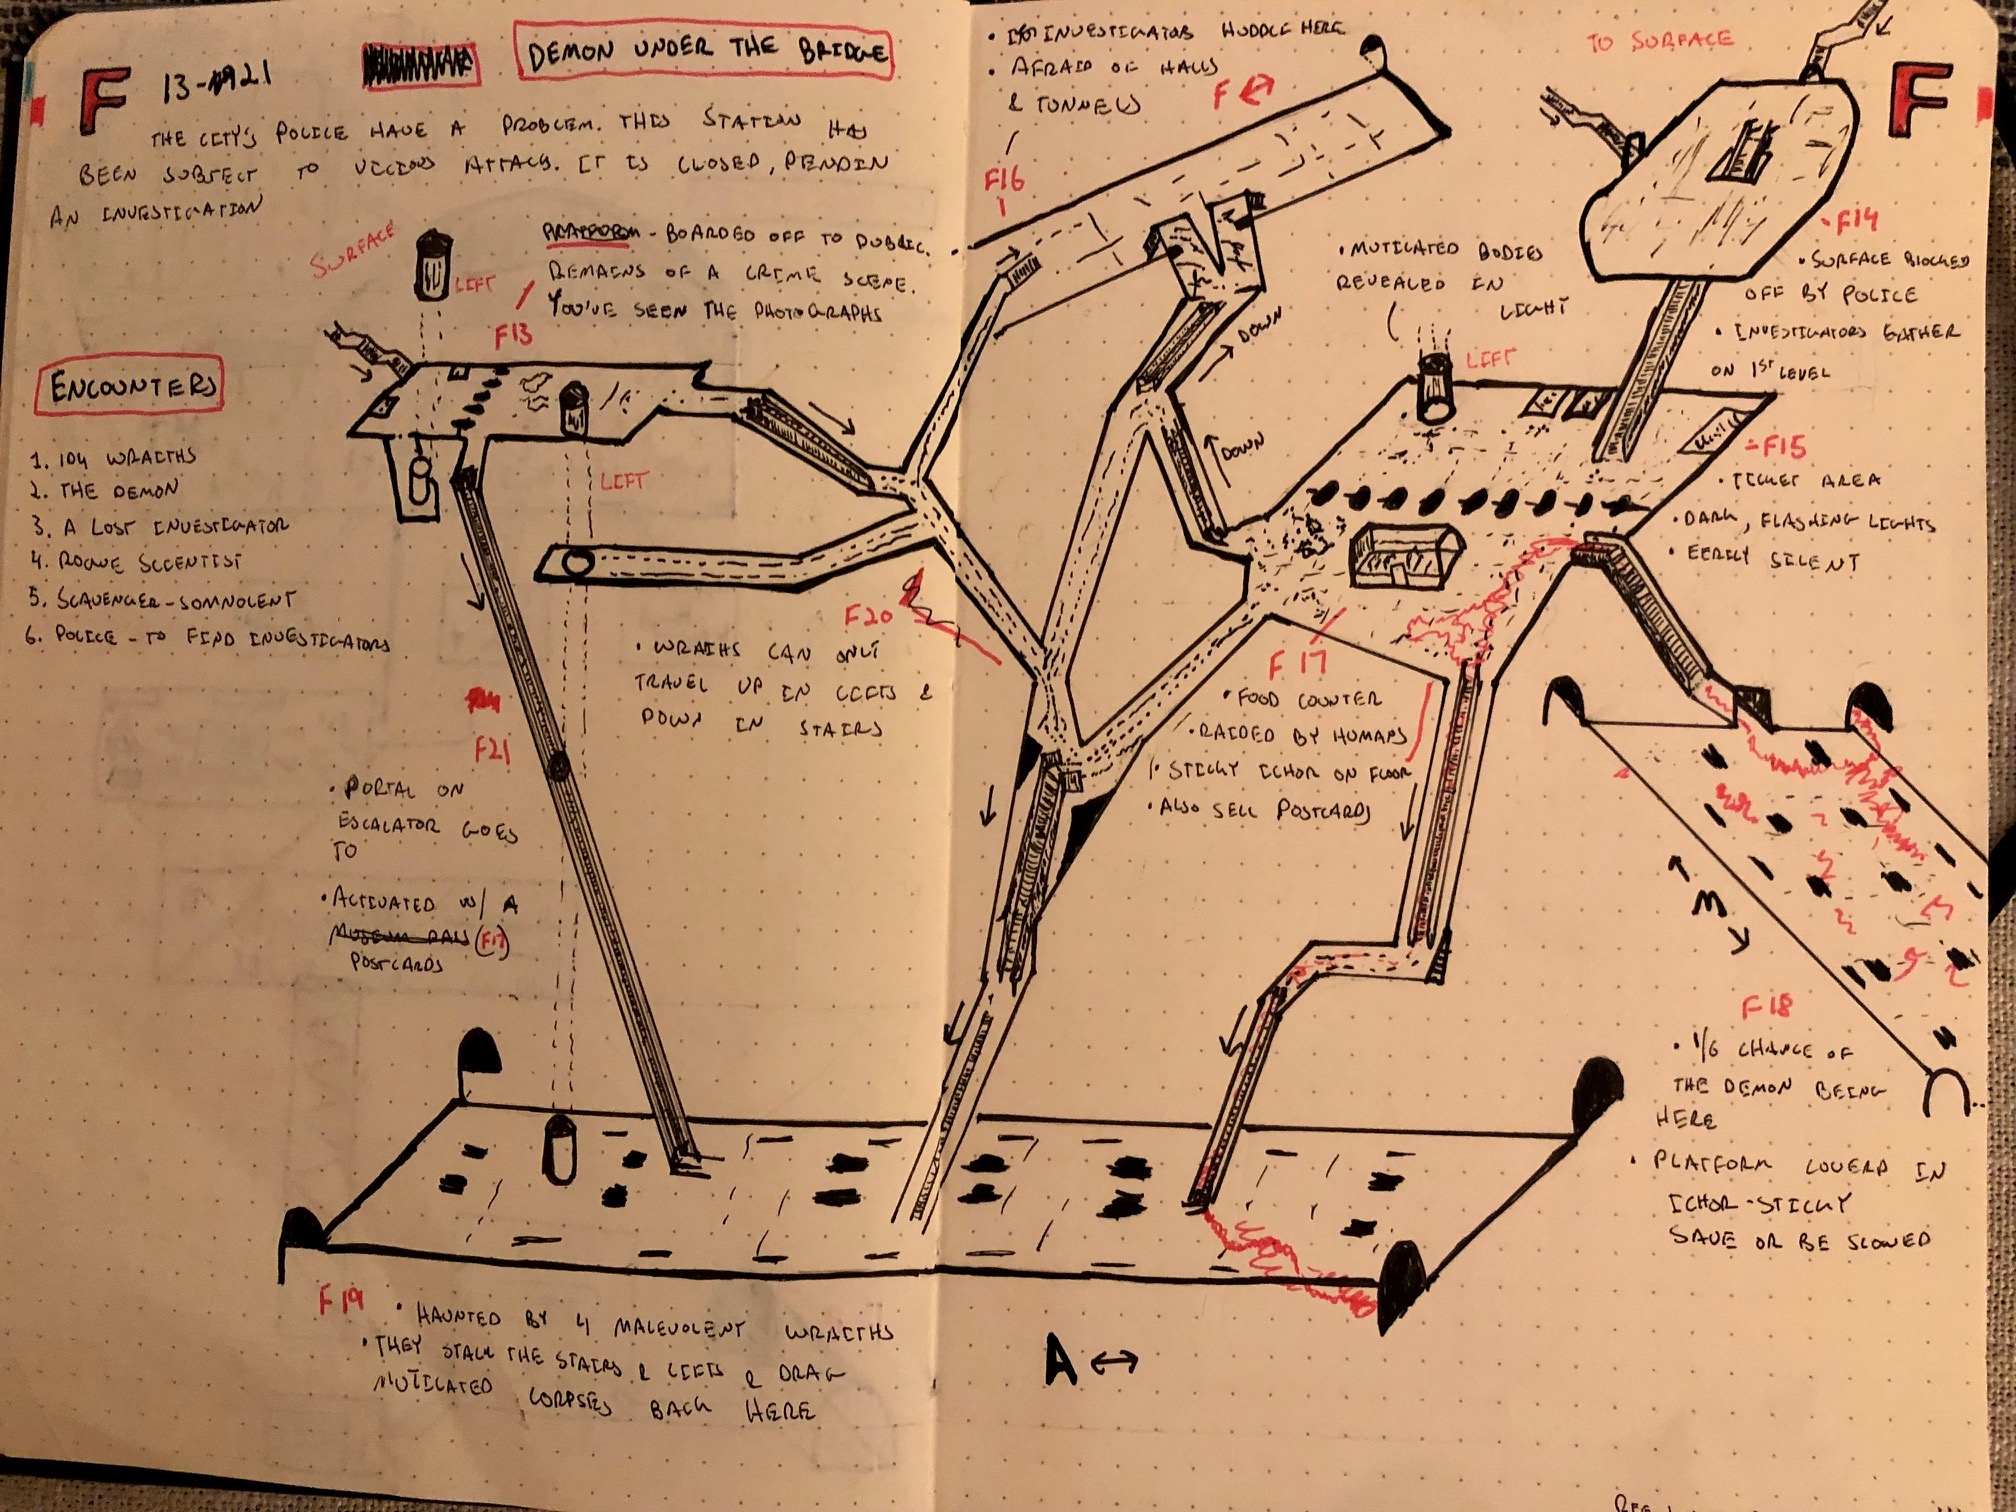 F 13-21
DEMON UNDER THE BRIDGE
THE CITY'S POLICE HAVE A PROBLEM. THIS STATION HAS
BEEN SUBJECT TO VICIOUS ATTACKS. IT IS CLOSED, PENDIN
AN INVESTIGATION
SURFACE
LIFT
PLATFORM - BOARDED OFF TO PUBLIC.
REMAINS OF A CRIME SCENE.
YOU'VE SEEN THE PHOTOGRAPHS
F13
ENCOUNTERS
1. 1D4 WRAITHS
2. THE DEMON
3. A LOST INVESTIGATOR
4. ROGUE SCIENTIST
5. SCAVENGER - SOMNOLENT
6. POLICE - TO FIND INVESTIGATORS
LIFT
F20
• WRAIHS CAN ONLY
TRAVEL UP IN LIFTS &
DOWN IN STAIRS
F21
• PORTAL ON
ESCALATOR GOES
TO
• ACTIVATED W/ A
MUSEUM PASS (F17)
POSTCARDS
F19
• HAUNTED BY 4 MALEVOLENT WRAITHS
• THEY STALK THE STAIRS & LIFTS & DRAG
MUTILATED CORPSES BACK HERE
• INVESTIGATORS HUDDLE HERE
• AFRAID OF HALLS
& TUNNELS
F ↔
F16
TO SURFACE
F
DOWN
DOWN
• MUTILATED BODIES
REVEALED IN
LIGHT
LIFT
- F14
• SURFACE BLOCKED
OFF BY POLICE
• INVESTIGATORS GATHER
ON 1ST LEVEL
- F15
• TICKET AREA
• DARK, FLASHING LIGHTS
• EERILY SILENT
F17
• FOOD COUNTER
• RAIDED BY HUMANS
• STICKY ICHOR ON FLOOR
• ALSO SELL POSTCARDS
← M →
F18
• 1/6 CHANCE OF
THE DEMON BEING
HERE
• PLATFORM COVERD IN
ICHOR - STICKY
SAVE OR BE SLOWED
A ↔